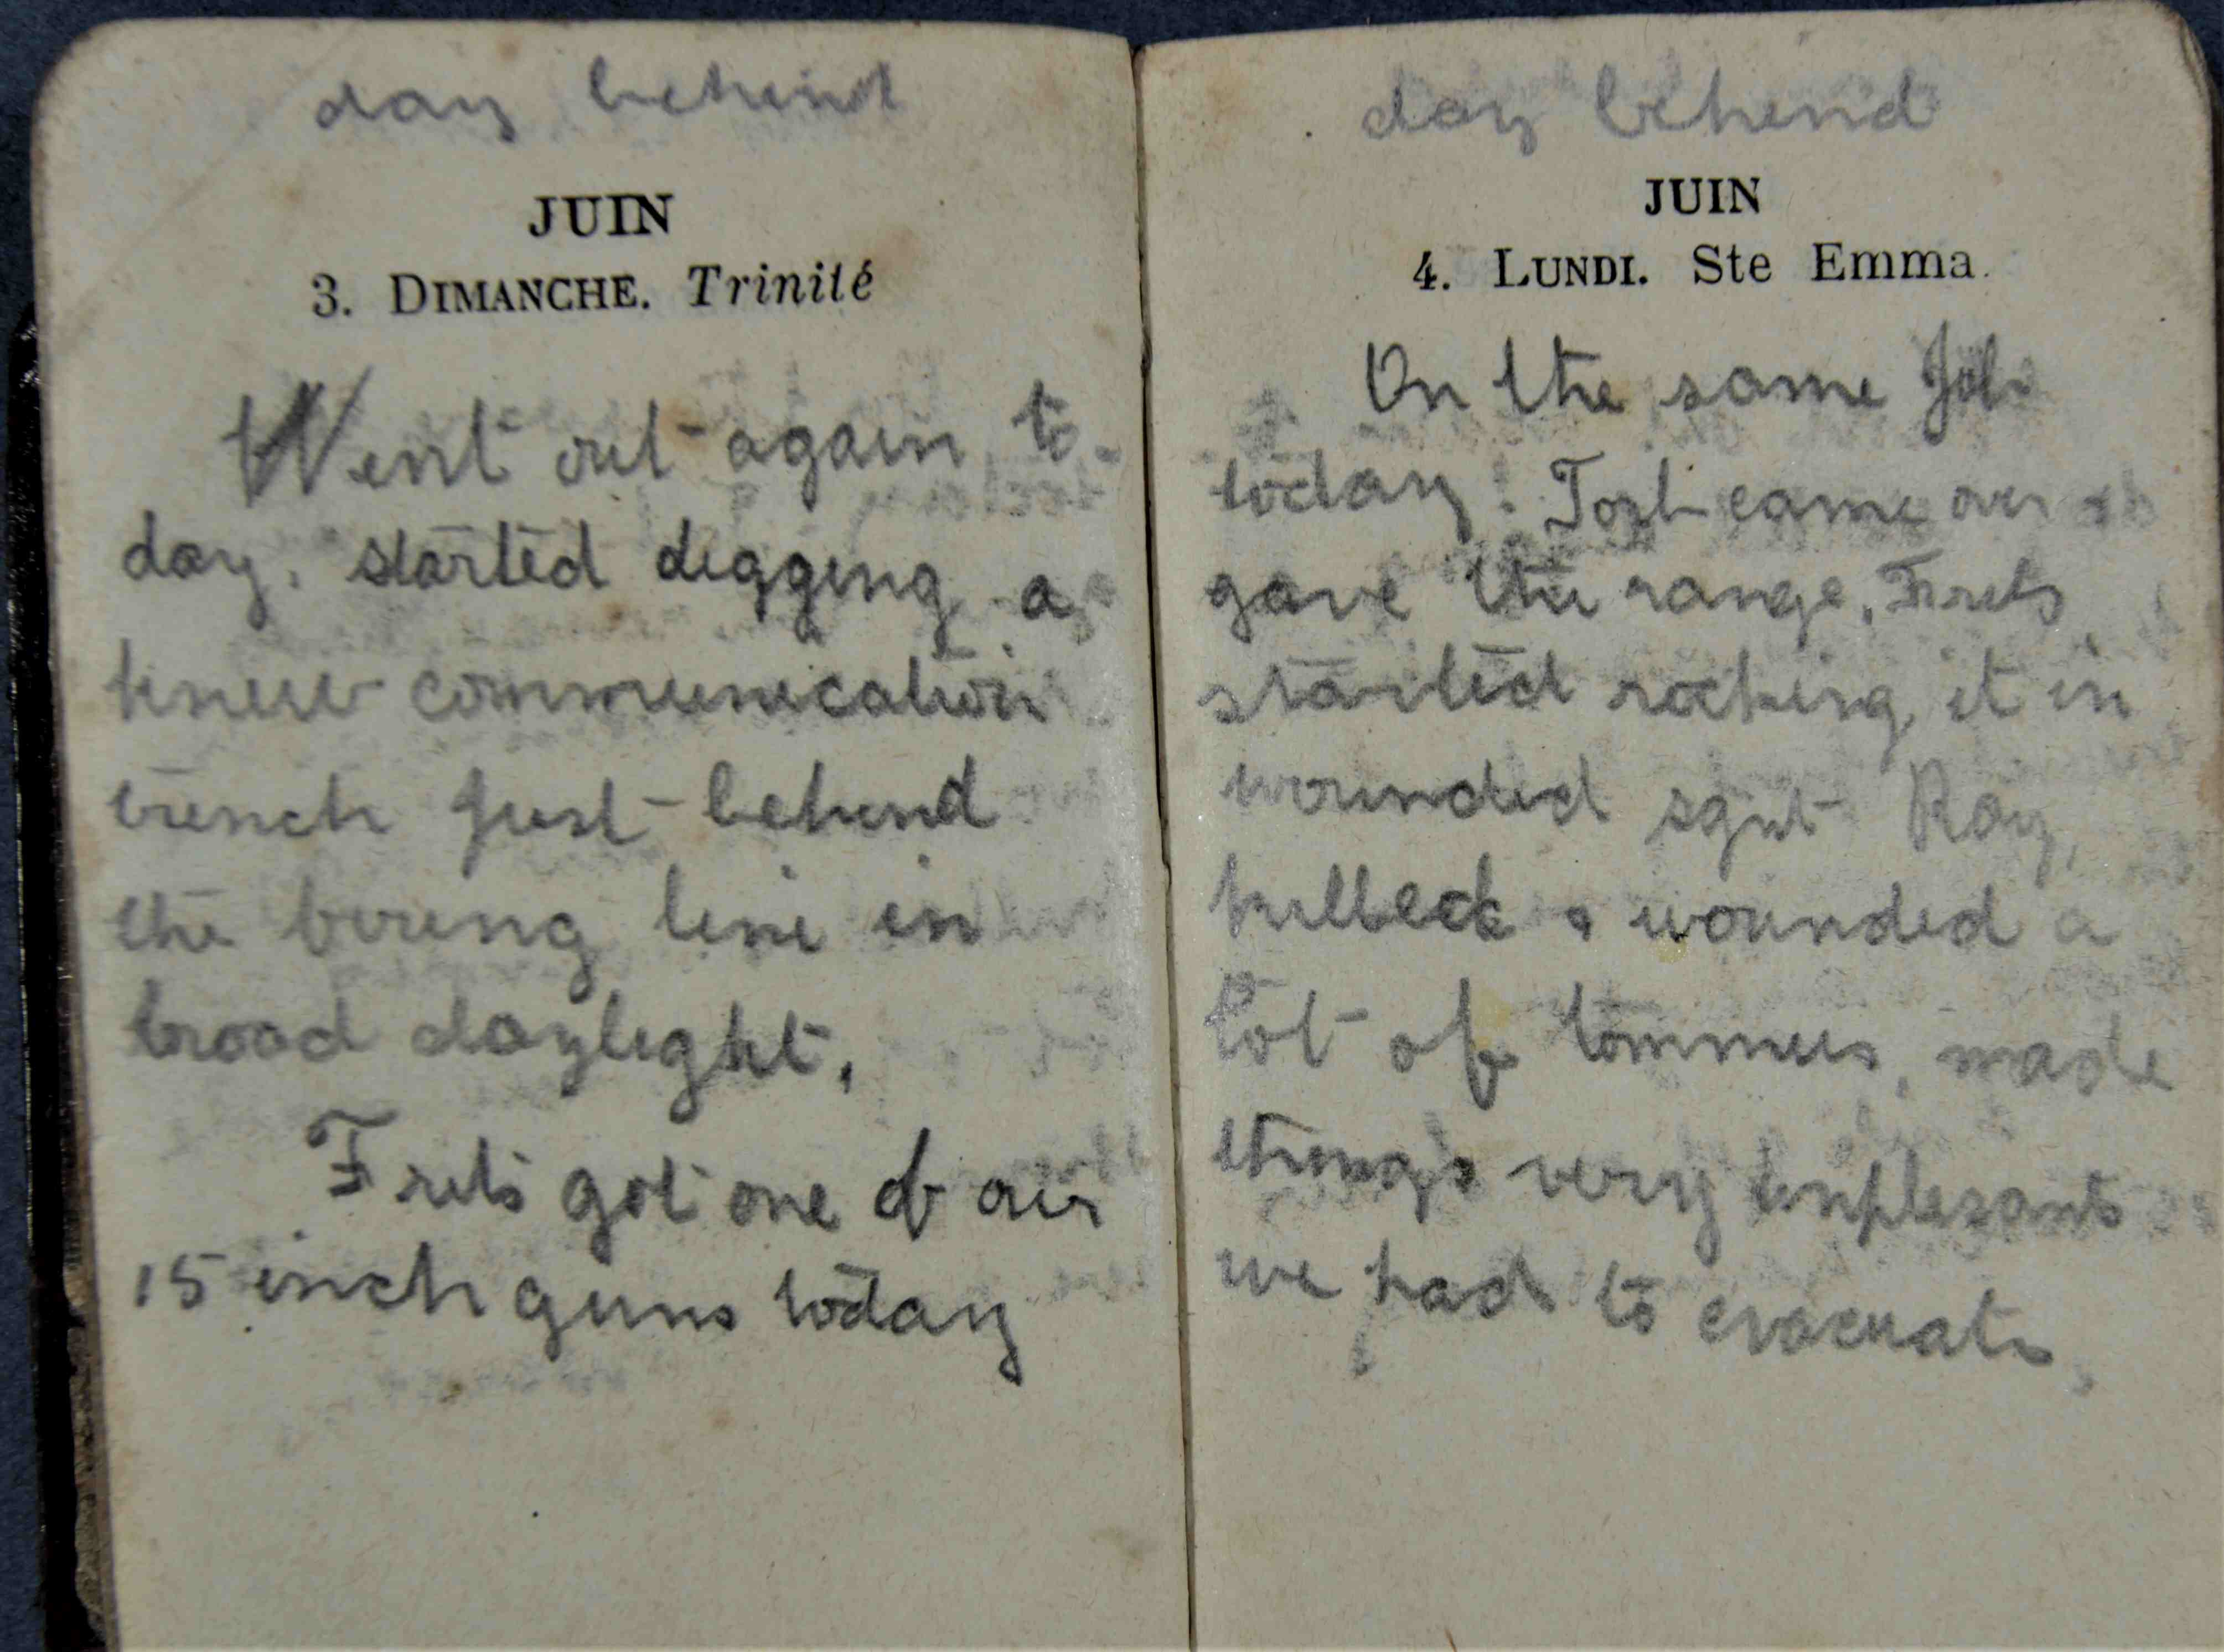 day behind
JUIN
3. DIMANCHE. Trinité
Went out again to
day. started digging a
knew communication
trench just behind
the firing line in
broad daylight.
Frits got one of our
15 inch guns today
day behind
JUIN
4. LUNDI. Ste Emma
On the same Job
today. came over
gave the range. Frits
started rocking it in
wounded sgnt Ray,
killed & wounded a
lot of tommies, made
things very unplesant
we had to evacuate